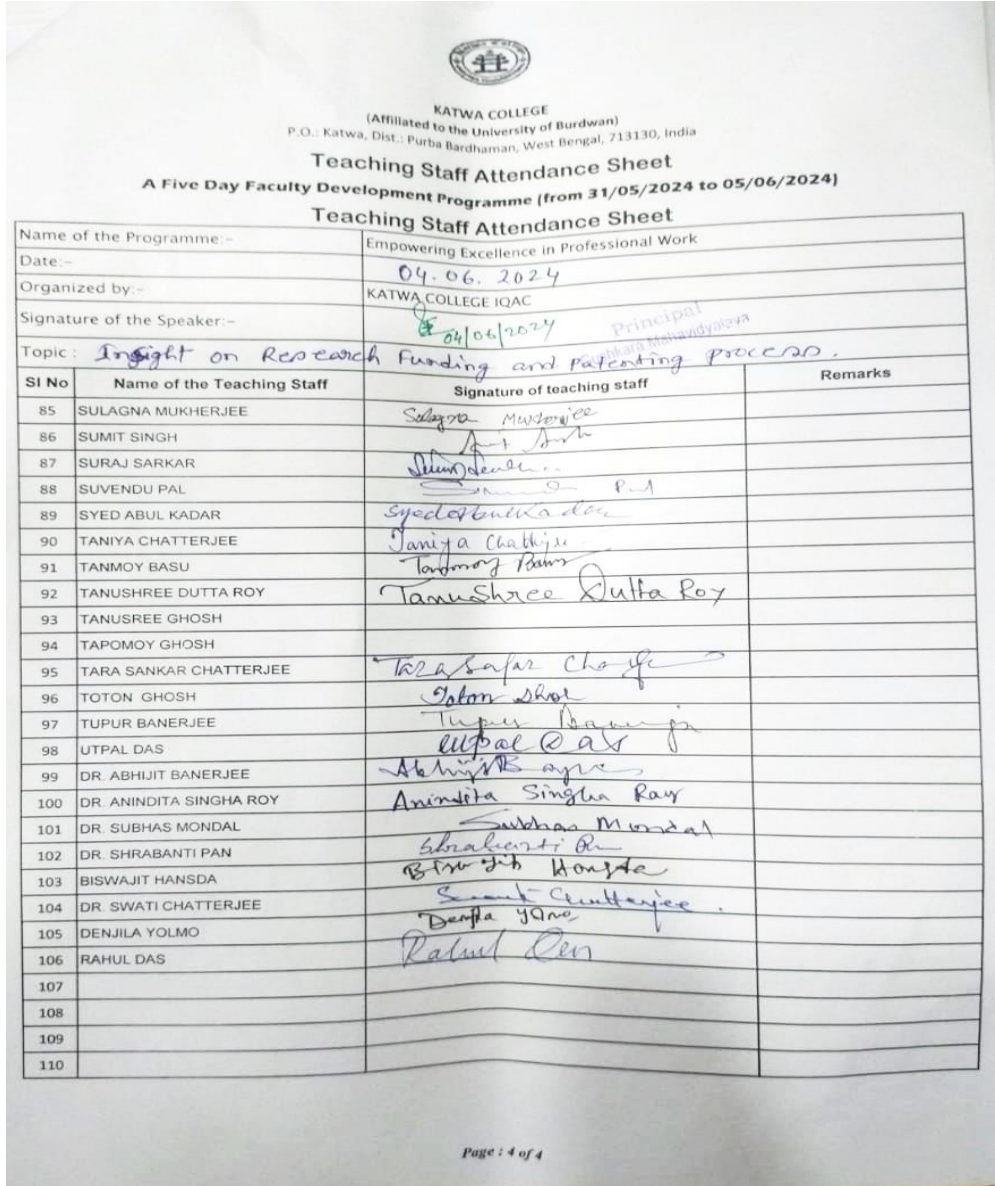 KATWA COLLEGE
(Affiliated to the University of Burdwan)
P.O.: Katwa, Dist.: Purba Bardhaman, West Bengal, 713130, India
Teaching Staff Attendance Sheet
A Five Day Faculty Development Programme (from 31/05/2024 to 05/06/2024)
Teaching Staff Attendance Sheet
Name of the Programme:- Empowering Excellence in Professional Work
Date:- 04.06.2024
Organized by:- KATWA COLLEGE IQAC
Signature of the Speaker:- 04/06/2024 Principal
Mahavidyalaya
Topic: Insight on Research Funding and patenting process.
Sl No Name of the Teaching Staff Signature of teaching staff Remarks
85 SULAGNA MUKHERJEE Sulagna Mukherjee
86 SUMIT SINGH
87 SURAJ SARKAR
88 SUVENDU PAL
89 SYED ABUL KADAR Syed Abul Kadar
90 TANIYA CHATTERJEE Taniya Chatterjee
91 TANMOY BASU Tanmoy Basu
92 TANUSHREE DUTTA ROY TanuShree Dutta Roy
93 TANUSREE GHOSH
94 TAPOMOY GHOSH
95 TARA SANKAR CHATTERJEE Tara
96 TOTON GHOSH Toton
97 TUPUR BANERJEE Tupur Banerjee
98 UTPAL DAS Utpal Das
99 DR. ABHIJIT BANERJEE Abhijit
100 DR. ANINDITA SINGHA ROY Anindita Singha Roy
101 DR. SUBHAS MONDAL Subhas Mondal
102 DR. SHRABANTI PAN Shrabanti
103 BISWAJIT HANSDA Biswajit Hansda
104 DR. SWATI CHATTERJEE Chatterjee.
105 DENJILA YOLMO Denjila Yolmo
106 RAHUL DAS Rahul Das
107
108
109
110
Page : 4 of 4